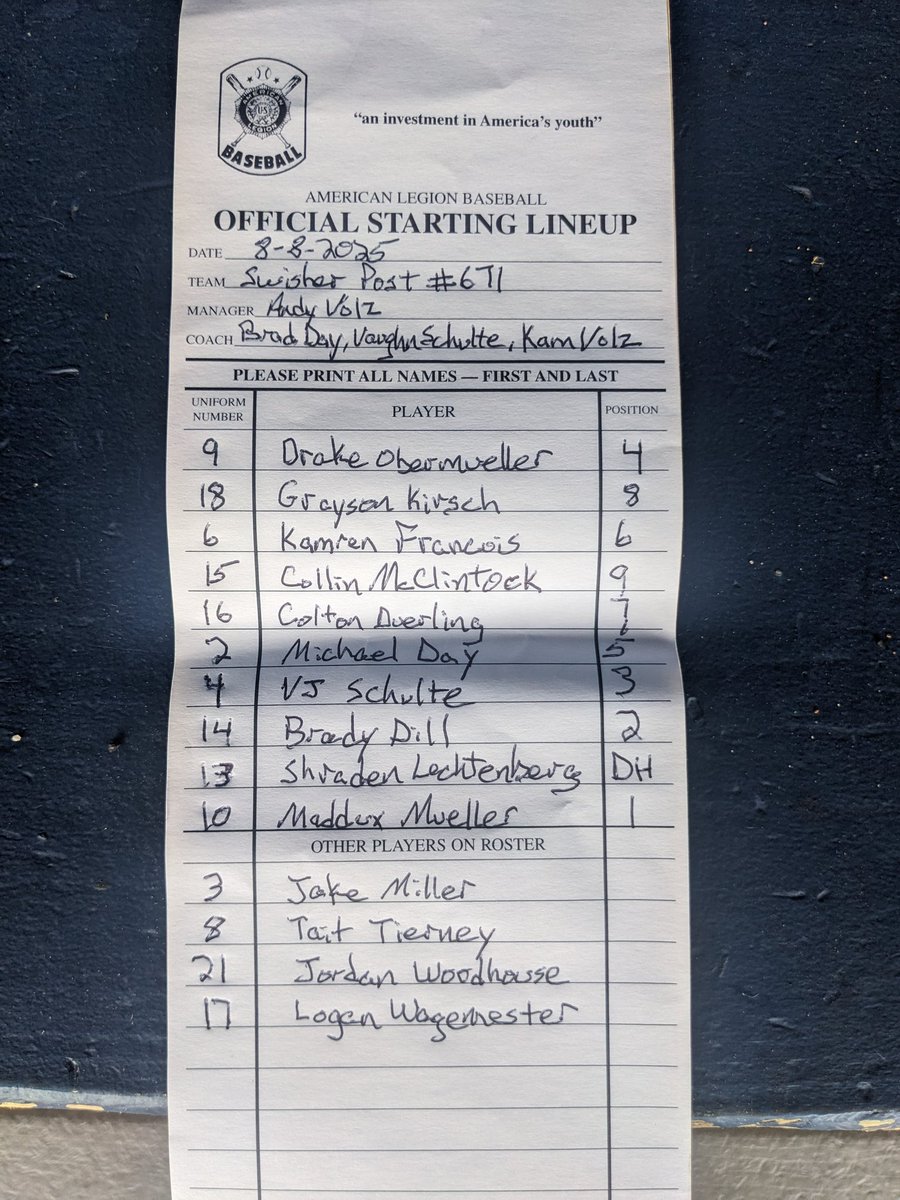 AMERICAN LEGION
US
BASEBALL
"an investment in America's youth"
AMERICAN LEGION BASEBALL
OFFICIAL STARTING LINEUP
DATE 8-8-2025
TEAM Swisher Post #671
MANAGER Andy Volz
COACH Brad Day, Vaughn Schulte, Kam Volz
PLEASE PRINT ALL NAMES — FIRST AND LAST
UNIFORM NUMBER PLAYER POSITION
9 Drake Obermueller 4
18 Grayson Kirsch 8
6 Kamren Francois 6
15 Collin McClintock 9
16 Colton Duerling 7
2 Michael Day 5
4 VJ Schulte 3
14 Brady Dill 2
13 Shraden Lechtenberg DH
10 Maddux Mueller 1
OTHER PLAYERS ON ROSTER
3 Jake Miller
8 Tait Tierney
21 Jordan Woodhouse
17 Logan Wagemester